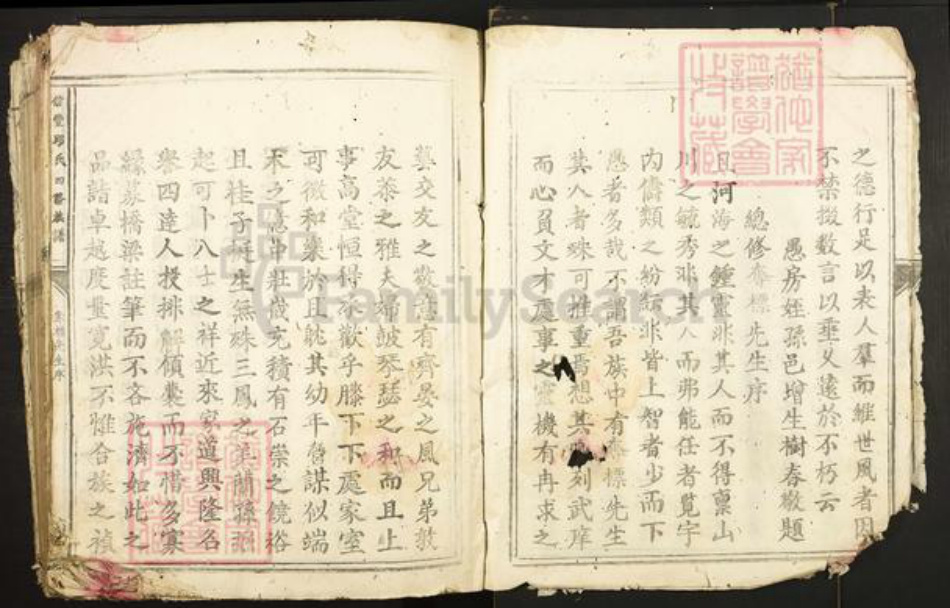 之德行足以表人羣而維世風者因
不禁掇数言以垂久遠於不朽云
愚房姪孫邑增生樹春敬題
總修奪標先生序
且河海之鍾靈非其人而不得稟山
川之毓秀非其人而弗能任者覧宇
内儔類之紛紜非皆上智者少而下
愚者多哉不謂吾族中有標先生
其人者殊可推重焉想其刻武庠
而心員文才處事之靈機有冉求之
藝交友之敬應有齊晏之風兄弟敦
友恭之雅夫婦皷琴瑟之和而且上
事高堂恒得承歡乎膝下下處家室
可徵和樂於且眈其幼年啓謀似端
木之億中壯歲充積有石崇之饒裕
且桂子挺生無殊三鳳之美蘭孫
起可卜八士之祥近來家道興隆名
譽四達人投排解傾囊而不惜多寡
緣募橋梁註筆而不吝施濟如此之
品詣卓越度量寛洪不惟合族之禎
氏四修族譜
奪標先生序
譜學會
收藏
FamilySearch